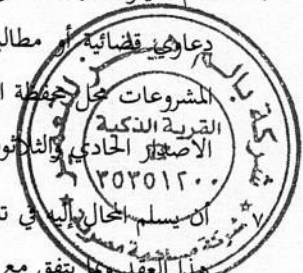 دعاوى قضائية أو مطالب
المشروعات محل محفظة ا
القرية الذكية
الاصدار الحادي والثلاثون
٣٥٣٥١٢٠٠
أن يسلم المحال إليه في ت
هذا العقد وبما يتفق مع
شركة
شركة مساهمة مصرية